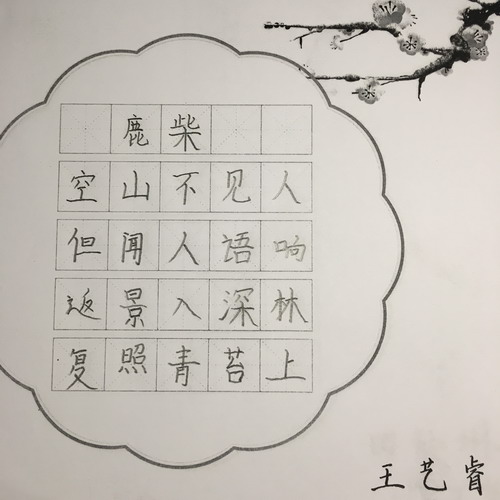 鹿柴
空山不见人
但闻人语响
返景入深林
复照青苔上
王艺睿